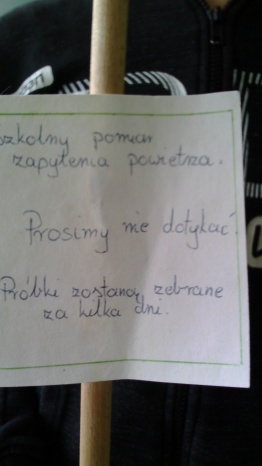 szkolny pomiar
zapylenia powietrza.
Prosimy nie dotykać
Próbki zostaną zebrane
za kilka dni.